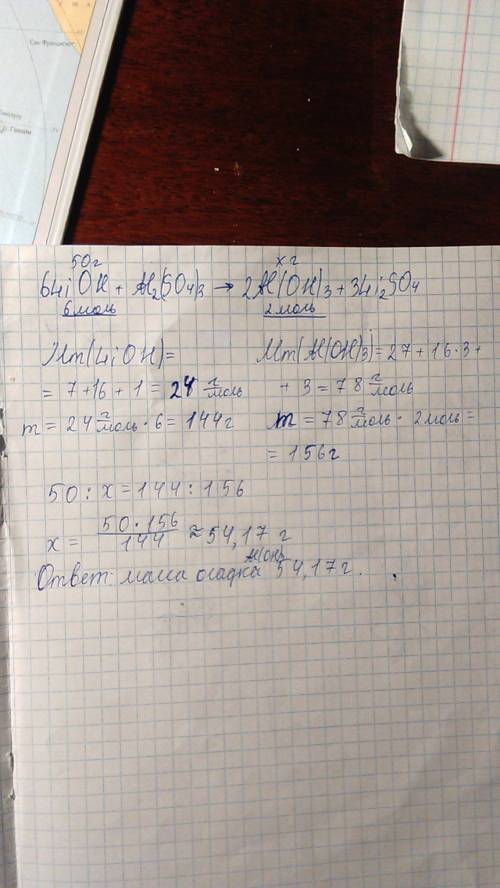 Сан-Франциско
50 г
x г
6LiOH + Al2(SO4)3 → 2Al(OH)3 + 3Li2SO4
6 моль
2 моль
Mm(LiOH)=
= 7+16+1 = 24 г/моль
m = 24 г/моль · 6 = 144 г
Mm(Al(OH)3) = 27 + 16·3 +
+ 3 = 78 г/моль
m = 78 г/моль · 2 моль =
= 156 г
50 : x = 144 : 156
x = 50·156/144 ≈ 54,17 г
Al(OH)3
Ответ: масса осадка 54,17 г.